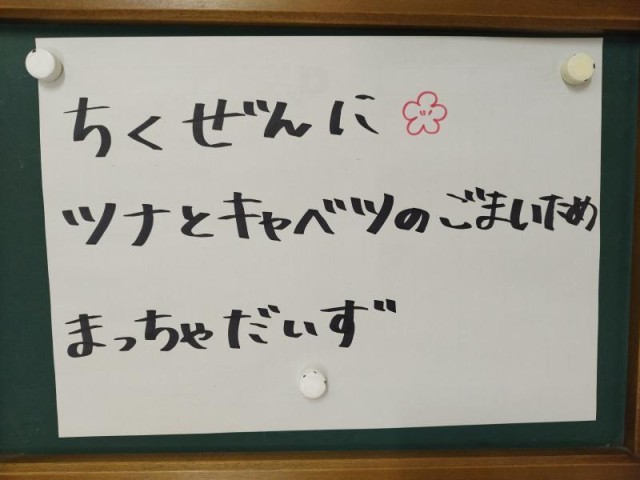 ちくぜんに
ツナとキャベツのごまいため
まっちゃだいず